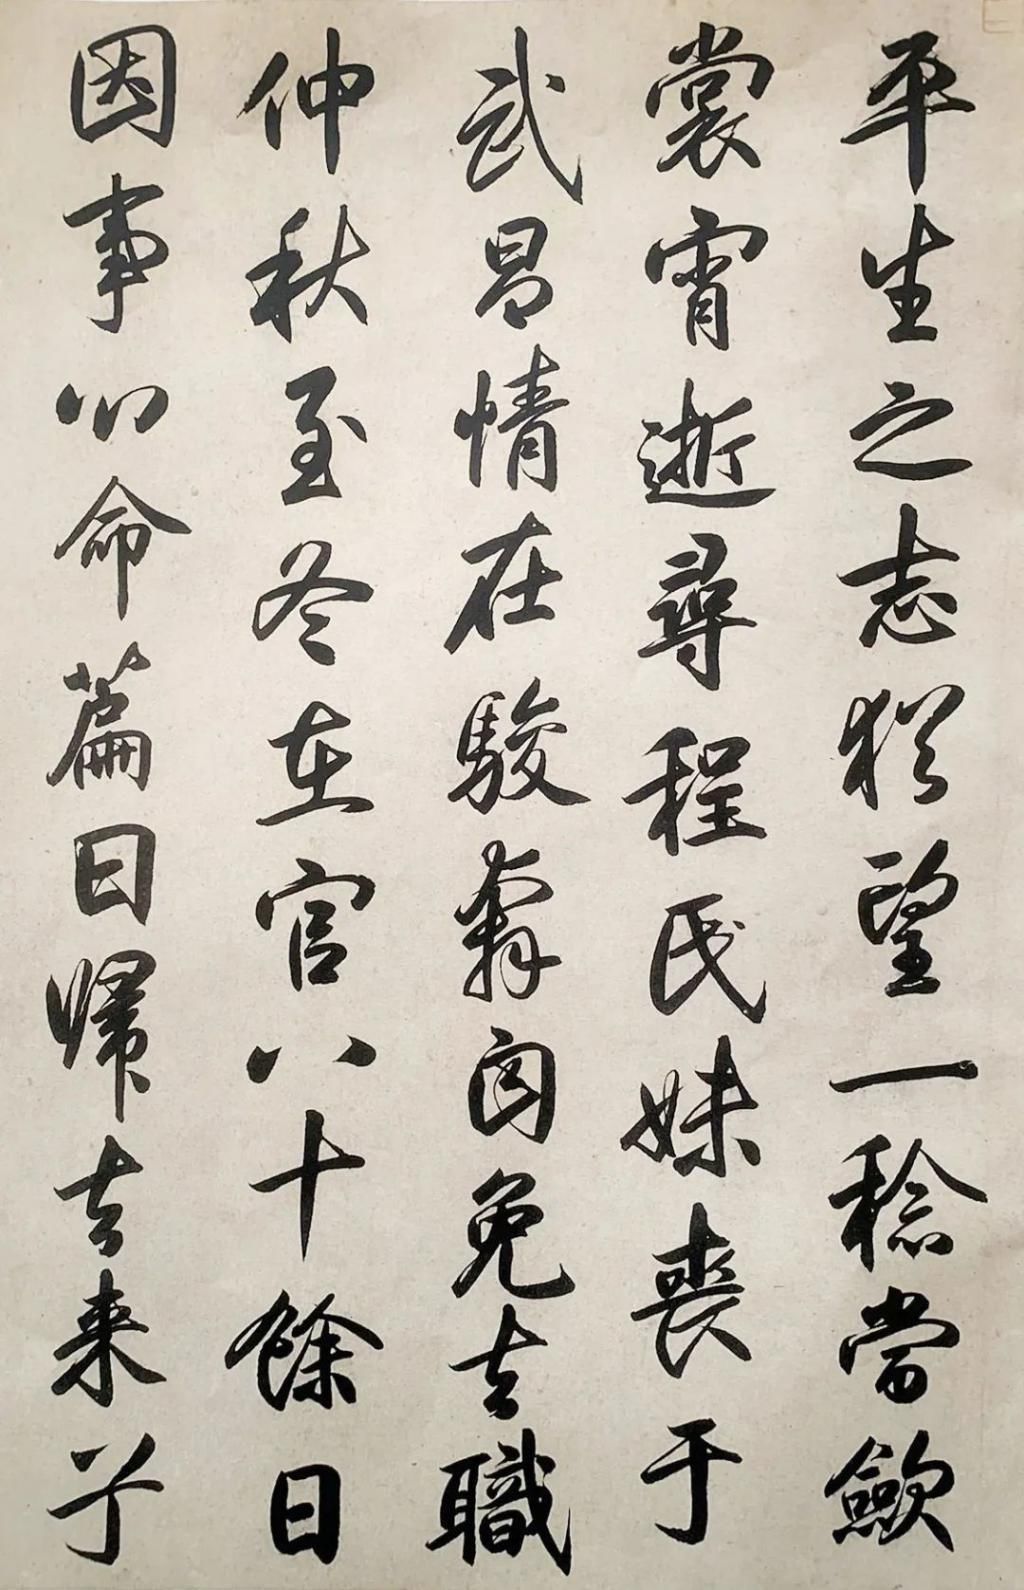 平生之志犹望一稔當歛
裳宵逝尋程氏妹喪于
武昌情在駿奔自免去職
仲秋至冬在官八十餘日
因事心命篇曰歸去来兮